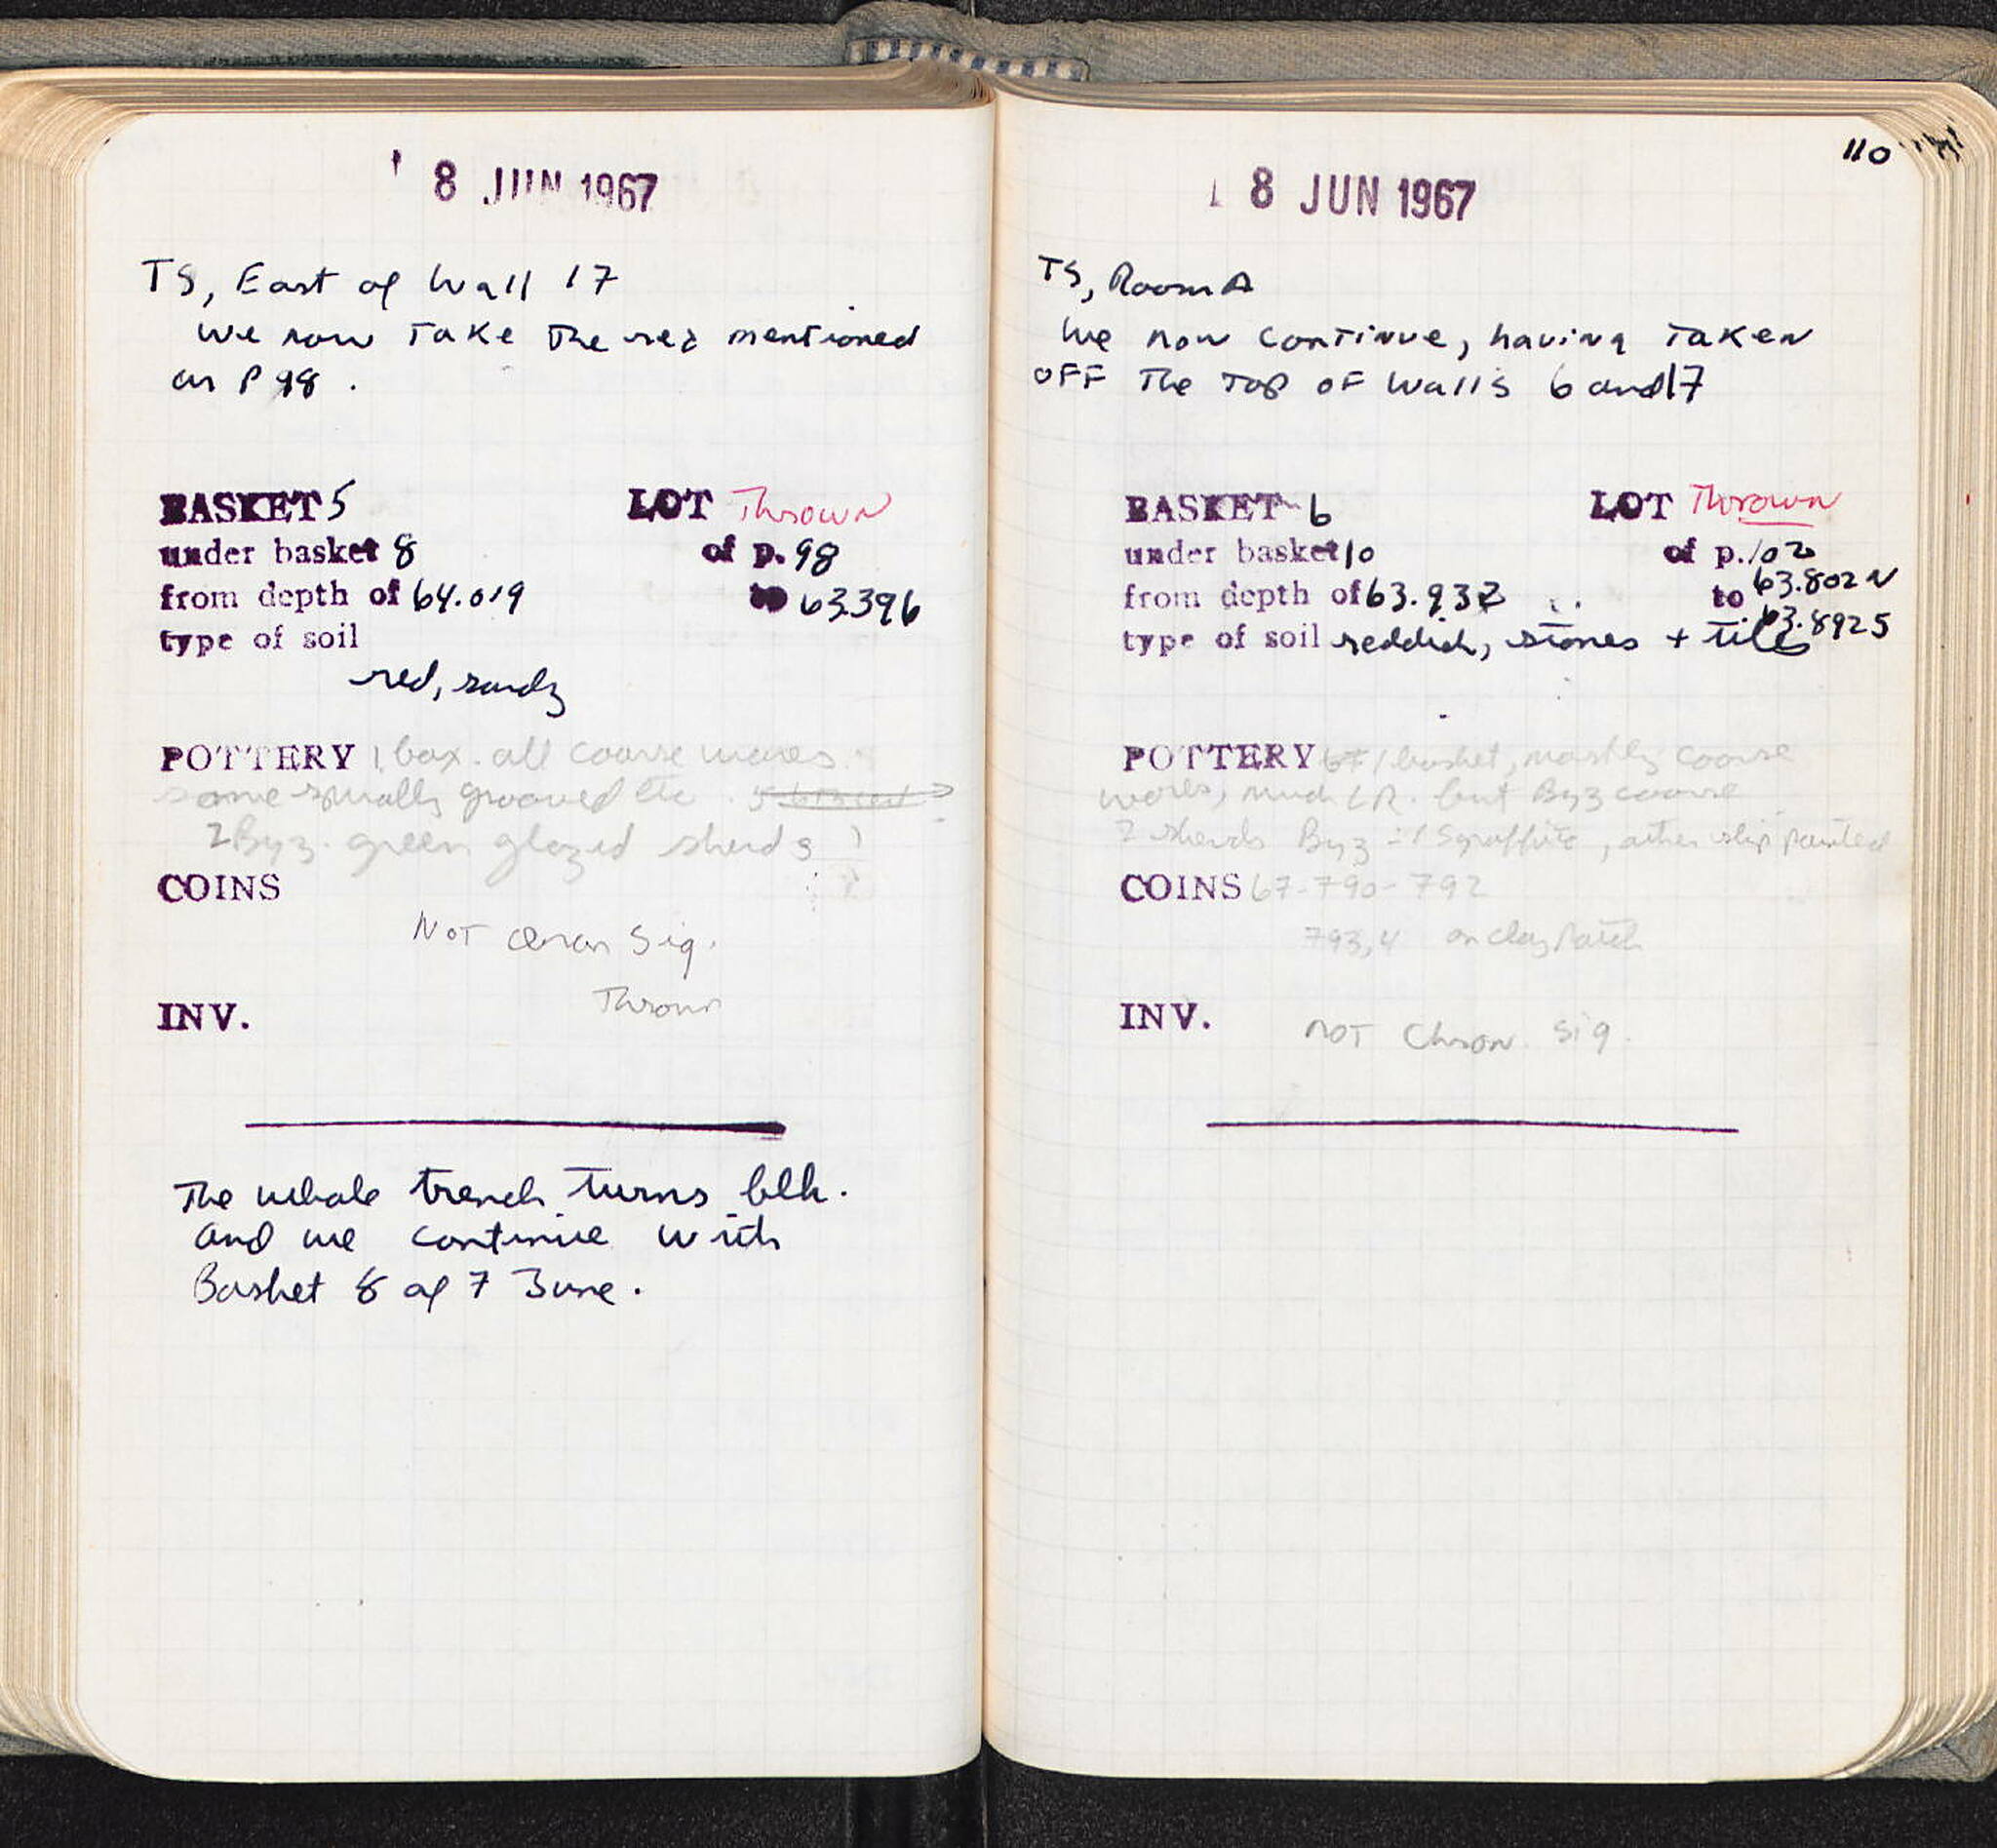 8 JUN 1967
TS, East of Wall 17
We now take the red mentioned
on P 98.
BASKET 5 LOT Thrown
under basket 8 of p. 98
from depth of 64.019 to 63.396
type of soil
red, sandy
POTTERY 1 box. all coarse wares
some spirally grooved etc.
2 Byz. green glazed sherds
COINS
Not chron Sig.
Thrown
INV.
The whole trench turns blk.
and we continue with
Basket 8 of 7 June.
110
18 JUN 1967
TS, Room A
We now continue, having taken
off the top of walls 6 and 17
BASKET 6 LOT Thrown
under basket 10 of p. 102
from depth of 63.932 to 63.802 N
63.892 S
type of soil reddish, stones + tiles
POTTERY 1 basket, mostly coarse
wares, much LR. but Byz coarse
2 sherds Byz - 1 Sgraffito, other slip painted
COINS 67-790-792
793,4 on clay patch
INV.
Not Chron. Sig.